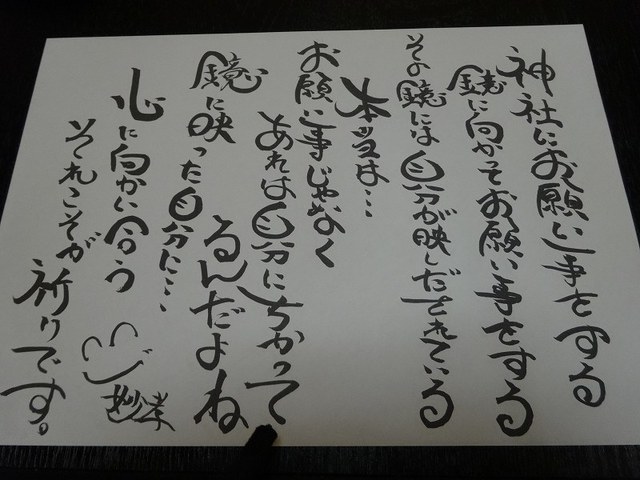 神社にお願い事をする
鏡に向かってお願い事をする
その鏡には自分が映しだされている
本当は…
お願い事じゃなく
あれは自分にちかって
るんだよね
鏡に映った自分に…
心に向かい合う
それこそが
祈りです。